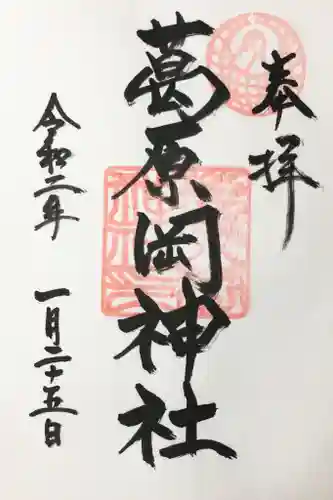 奉拝
葛原岡神社
令和二年
一月二十五日